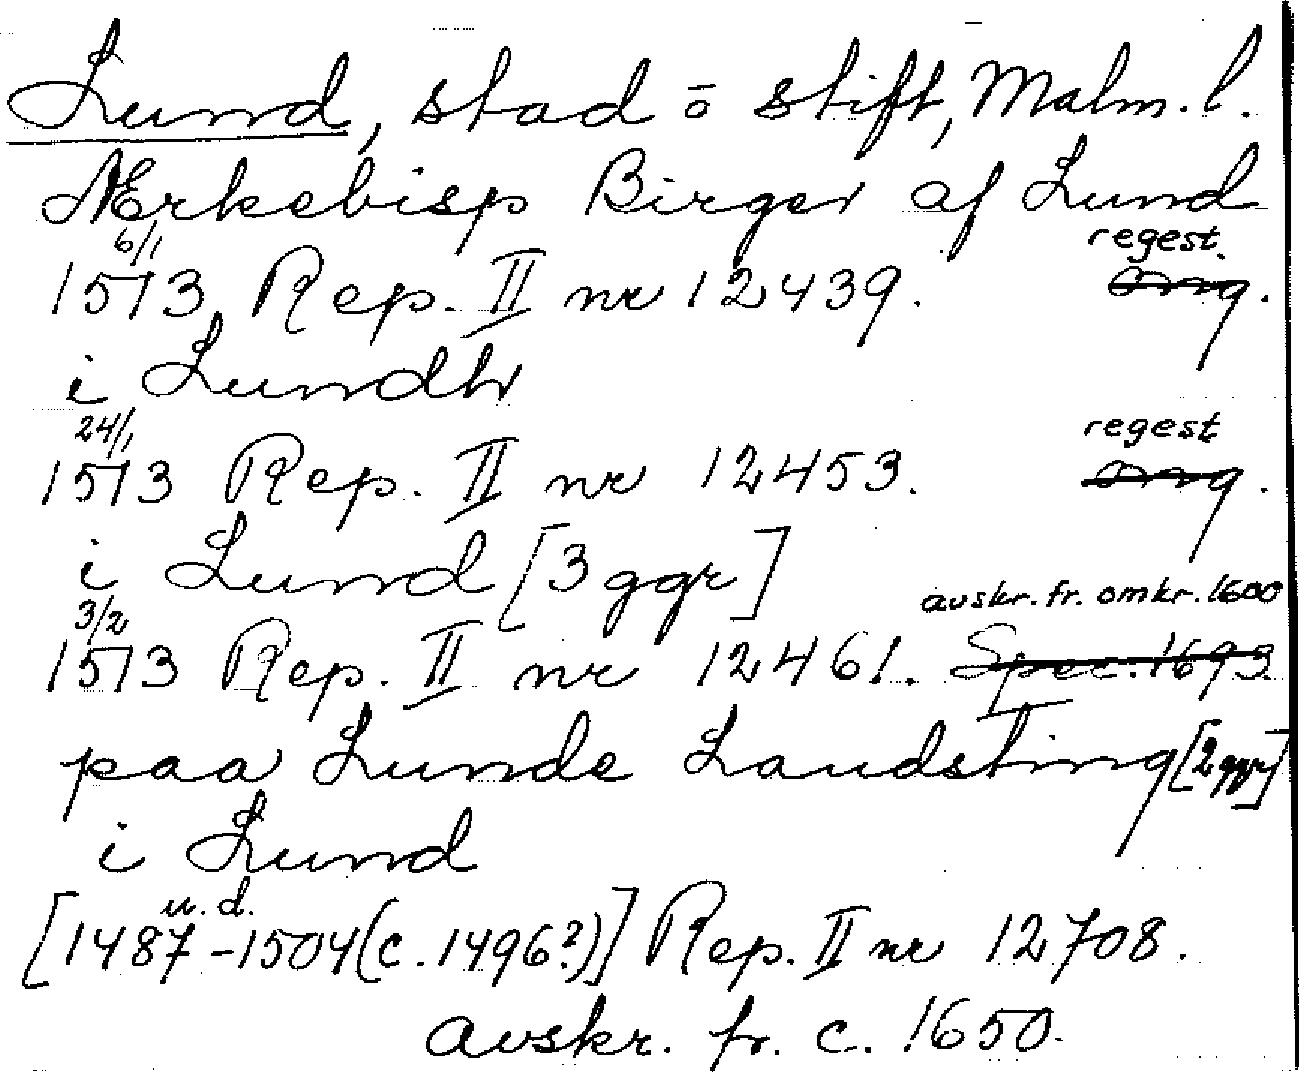 Lund, stad o stift, Malm. l.
Ærkebisp Birger af Lund
6/1 regest.
1513 Rep. II nr 12439. orig.
i Lundh
24/1 regest
1513 Rep. II nr 12453. orig.
i Lund [3 ggr]
3/2 avskr. fr. omkr. 1600
1513 Rep. II nr 12461. Spec. 1693
paa Lunde Landsting [2 ggr]
i Lund
u. d.
[1487-1504 (c. 1496?)] Rep. II nr 12708.
avskr. fr. c. 1650.